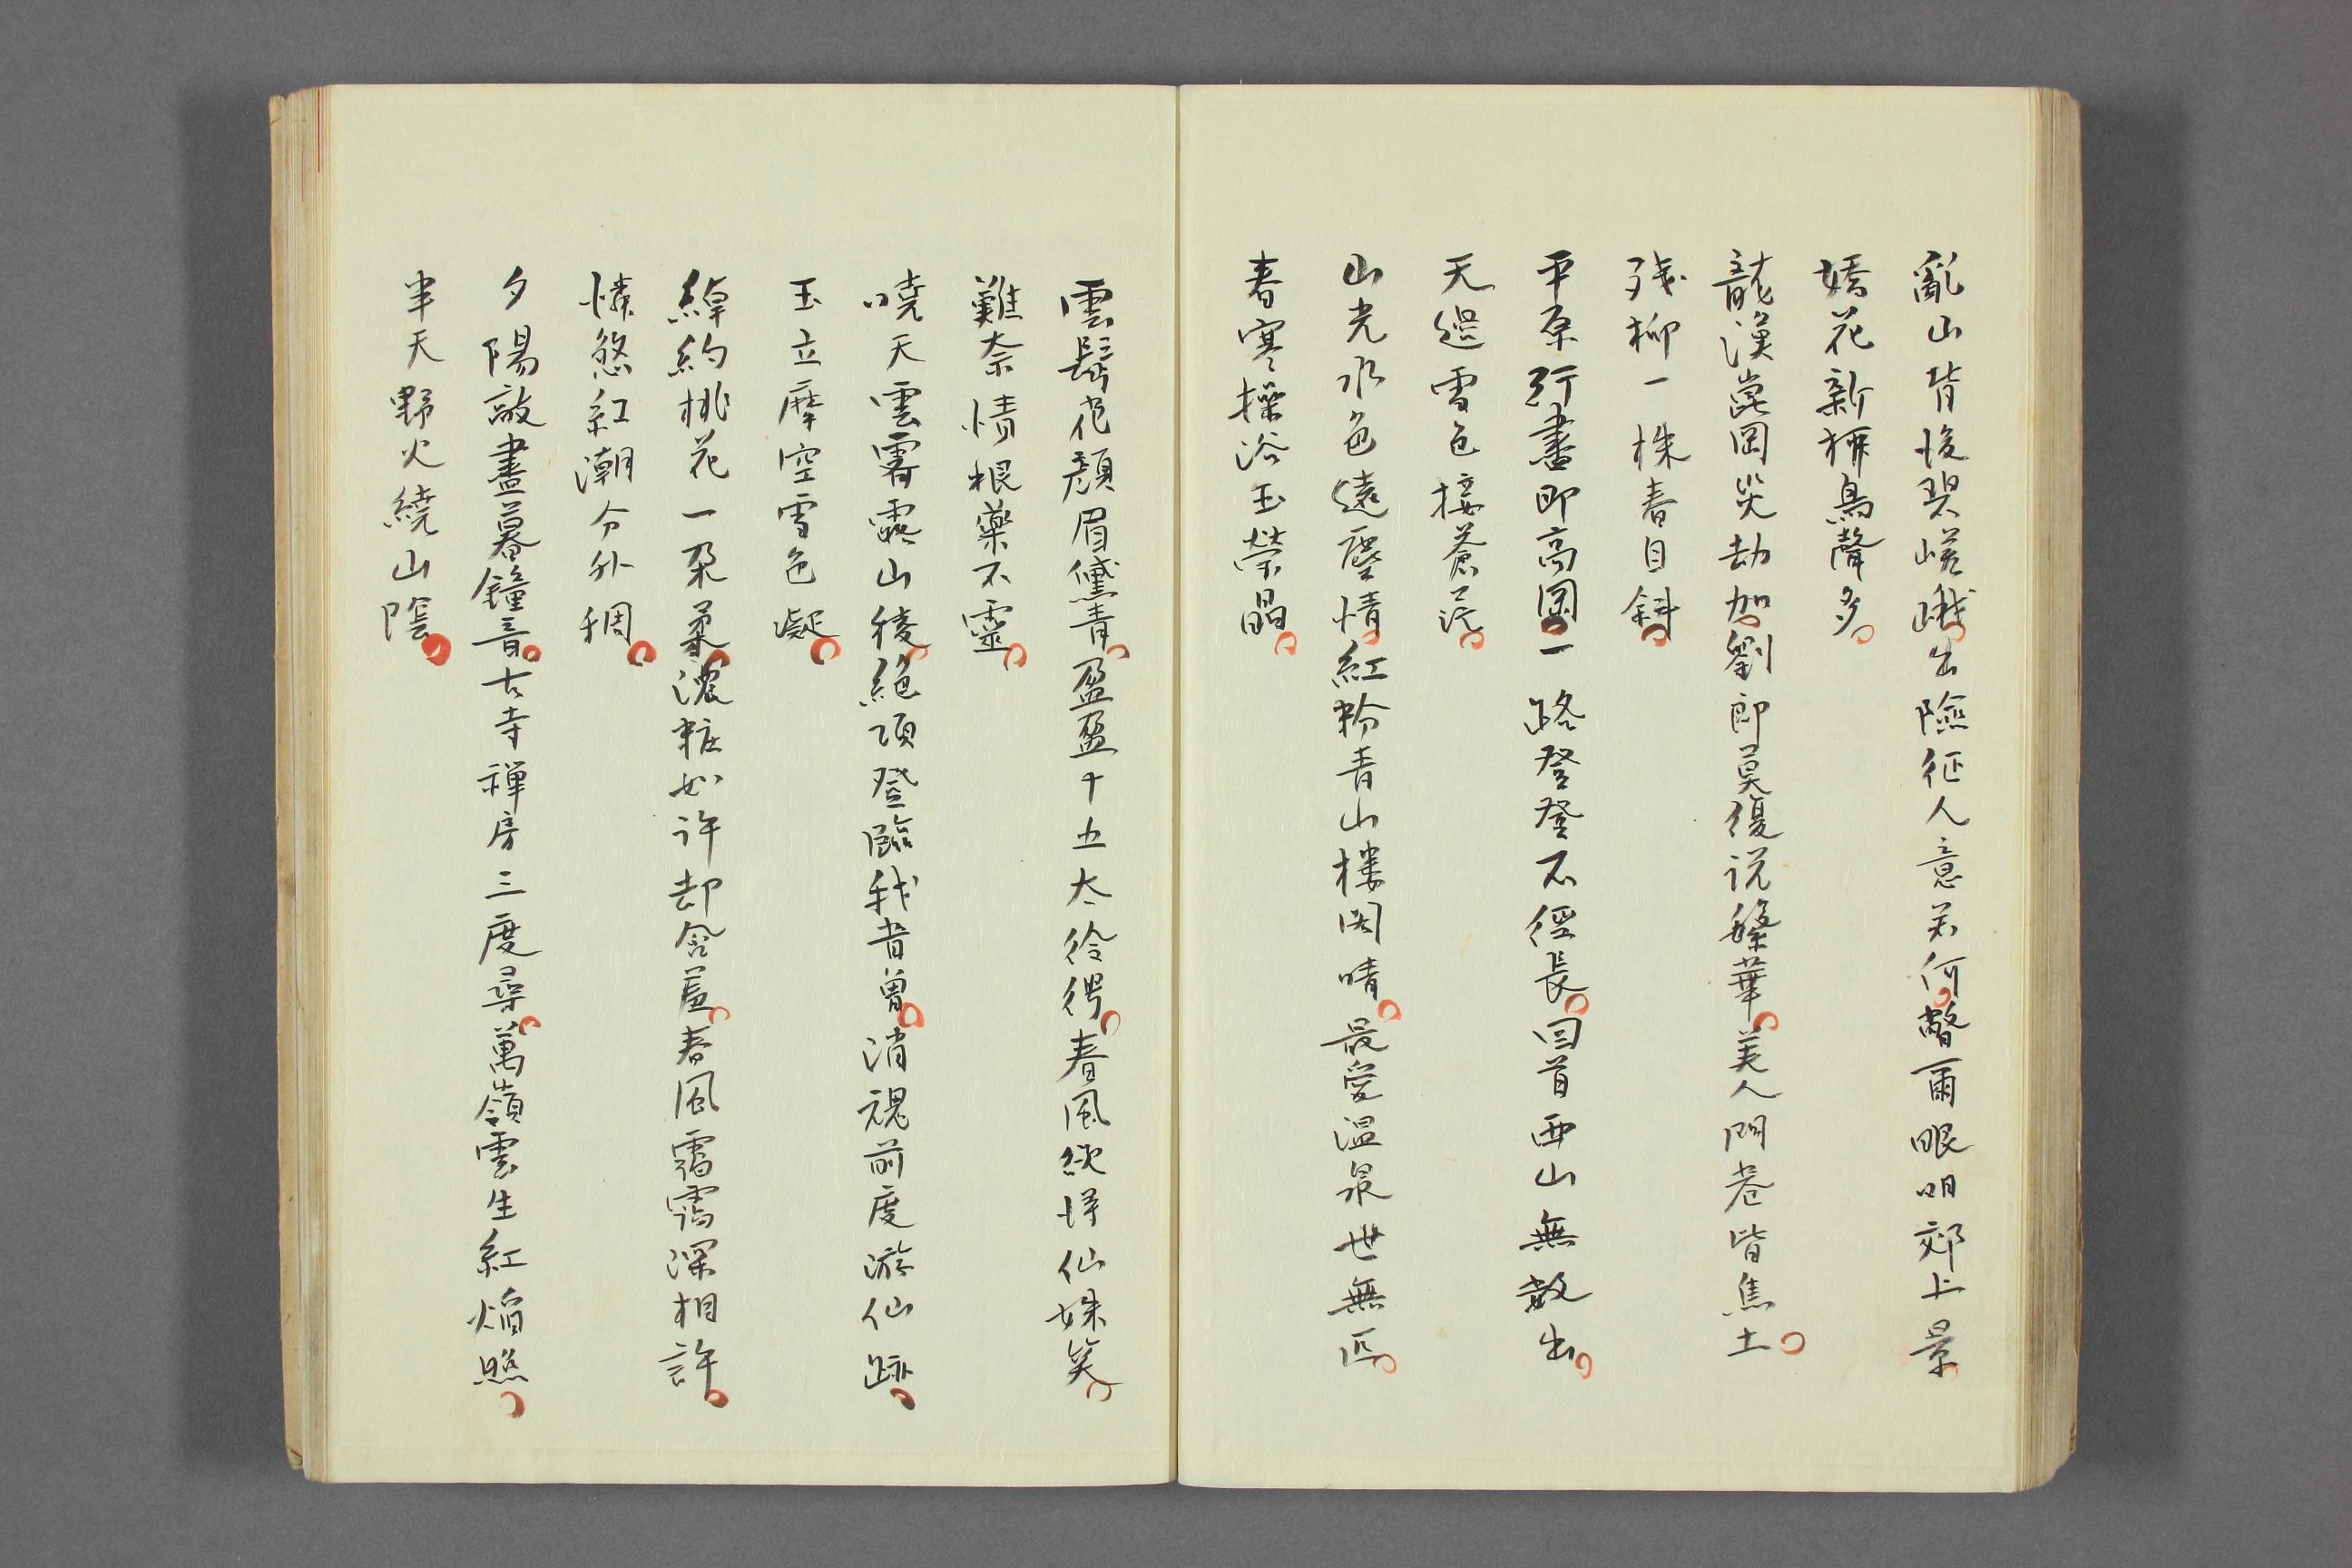 亂山背後碧嵯峨出險征人意若何瞥爾眼明郊上景
嬌花新柳鳥聲多
龍漢崑岡災劫加劉郎莫復説繁華美人門巷皆焦土
殘柳一株春自斜
平原行盡即高岡一路登登石徑長回首西山無数出
天邊雪色接蒼茫
山光水色遠塵情紅粉青山樓閣晴最愛温泉世無匹
春寒操浴玉榮晶
雲鬟花顏眉黛青盈盈十五太伶俜春風縱得仙姝笑
難奈情根藥不靈
曉天雲霽露山稜絶頂登臨我昔曾消魂前度游仙跡
玉立摩空雪色凝
綽約桃花一朶柔濃粧如許却含羞春風靄靄深相許
憐煞紅潮分外稠
夕陽敲盡暮鐘音古寺禅房三度尋萬嶺雲生紅焰照
半天野火繞山陰